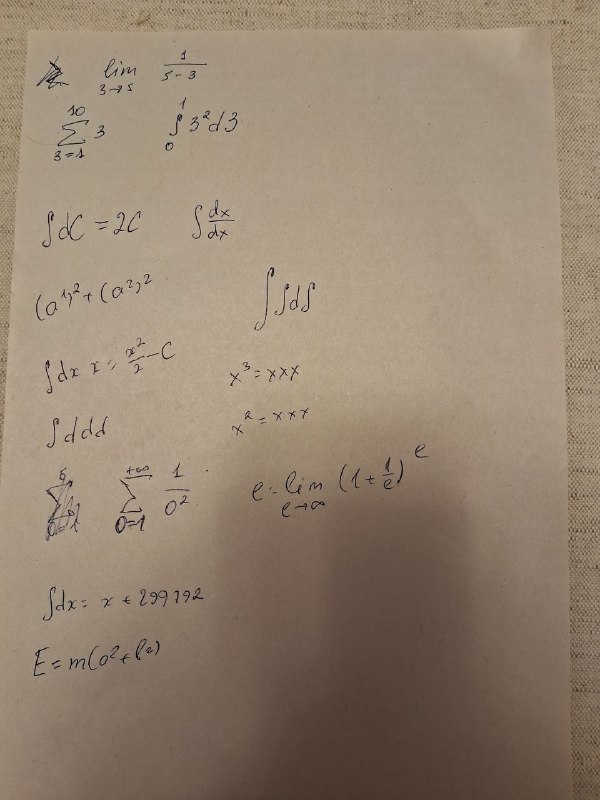 lim 3→5 1/(5-3)
∑ 3=1 10 3 ∫₀¹ 3²d3
∫dC = 2C ∫dx/dx
(a¹)²+(a²)² ∫∫d∫
∫dx x = x²/2 - C x³=xxx
∫ddd x²=xxx
∑ 0=1 +∞ 1/0² e = lim e→∞ (1+1/e)^e
∫dx = x + 299792
E=m(a²+b²)